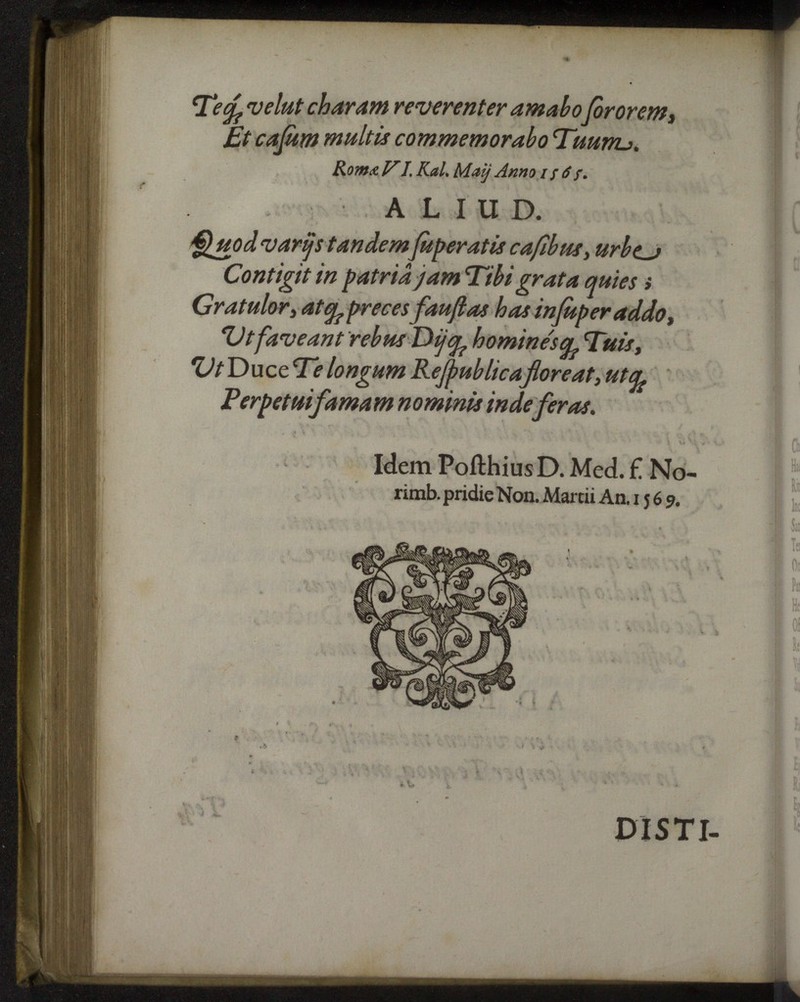 Teq́; velut charam reverenter amabo ſororem,
Et caſum multis commemorabo Tuum.
Romæ VI. Kal. Maij Anno 1565.
ALIUD.
Quod varijs tandem ſuperatis caſibus, urbe
Contigit in patriâ jam Tibi grata quies;
Gratulor, atq; preces fauſtas has inſuper addo,
Ut faveant rebus Dijq; hominésq; Tuis,
Ut Duce Te longum Reſpublica floreat, utq;
Perpetui famam nominis inde feras.
Idem Poſthius D. Med. f. No-
rimb. pridie Non. Martii An. 1569.
DISTI-